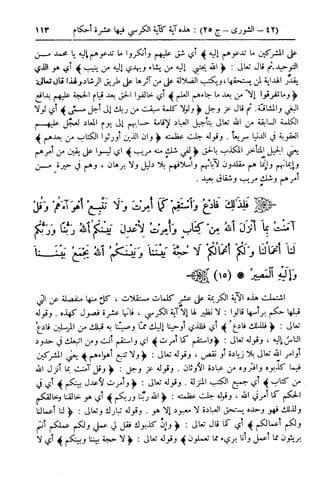 (٤٢) – الشورى – ج ٢٥) : هذه آية كآية الكرسي فيها عشرة أحكام ١١٣
على المشركين ما تدعوهم إليه﴾ أي شق عليهم وأنكروا ما تدعوهم إليه يا محمد من
التوحيد. ثم قال تعالى : ﴿ الله يجتبي إليه من يشاء ويهدي إليه من ينيب ﴾ أي هو الذي
يقدر الهداية لمن يستحقها، ويكتب الضلالة على من آثرها على طريق الرشاد ولهذا قال تعالى:
﴿ وما تفرقوا إلا من بعد ما جاءهم العلم ﴾ أي خالفوا الحق بعد قيام الحجة عليهم بدافع
البغي والمشاقة. ثم قال عز وجل ﴿ ولولا كلمة سبقت من ربك إلى أجل مسمى ﴾ أي لولا
الكلمة السابقة من الله تعالى بتأجيل العباد لإقامة حسابهم إلى يوم المعاد لعجل عليهم
العقوبة في الدنيا سريعاً. وقوله جلت عظمته : ﴿ وإن الذين أورثوا الكتاب من بعدهم ﴾
يعني الجيل المتأخر المكذب بالحق ﴿ لفي شك منه مريب ﴾ اي ليسوا على يقين من أمرهم
وإيمانهم وإنما هم مقلدون لآبائهم وأسلافهم بلا دليل ولا برهان ، وهم في حيرة من
أمرهم وشك مريب وشقاق بعيد .
﴿ فَلِذَٰلِكَ فَادْعُ وَاسْتَقِمْ كَمَا أُمِرْتَ وَلَا تَتَّبِعْ أَهْوَاءَهُمْ وَقُلْ
آمَنْتُ بِمَا أَنْزَلَ اللهُ مِنْ كِتَابٍ وَأُمِرْتُ لِأَعْدِلَ بَيْنَكُمُ اللهُ رَبُّنَا وَرَبُّكُمْ
لَنَا أَعْمَالُنَا وَلَكُمْ أَعْمَالُكُمْ لَا حُجَّةَ بَيْنَنَا وَبَيْنَكُمُ اللهُ يَجْمَعُ بَيْنَنَا
وَإِلَيْهِ الْمَصِيرُ ﴾ (١٥)
اشتملت هذه الآية الكريمة على عشر كلمات مستقلات ، كل منها منفصلة عن التي
قبلها حكم برأسها قالوا : لا نظير لها إلا آية الكرسي ، فانها عشرة فصول كهذه . وقوله
تعالى : ﴿ فلذلك فادع ﴾ أي فللذي أوحينا إليك مما وصينا به قبلك من المرسلين فادع
الناس إليه ، وقوله تعالى : ﴿ واستقم كما أمرت ﴾ اي واستقم أنت ومن اتبعك في حدود
أوامر الله تعالى بلا زيادة أو نقص ، وقوله تعالى : ﴿ ولا تتبع أهواءهم ﴾ يعني المشركين
فيما كذبوه وافتروه من عبادة الأوثان . وقوله عز وجل : ﴿ وقل آمنت بما أنزل الله
من كتاب ﴾ أي جميع الكتب المنزلة . وقوله تعالى : ﴿ وأمرت لأعدل بينكم ﴾ أي في
الحكم كما أمرني الله ، وقوله جلت عظمته : ﴿ الله ربنا وربكم ﴾ أي هو خالقنا وخالقكم
ولذلك فهو وحده يستحق العبادة لا معبود إلا هو . وقوله تبارك وتعالى : ﴿ لنا أعمالنا
ولكم أعمالكم ﴾ أي كما قال تعالى : ﴿ وإن كذبوك فقل لي عملي ولكم عملكم أنتم
بريئون مما أعمل وأنا بريء مما تعملون ﴾ وقوله تعالى : ﴿ لا حجة بيننا وبينكم ﴾ أي لا